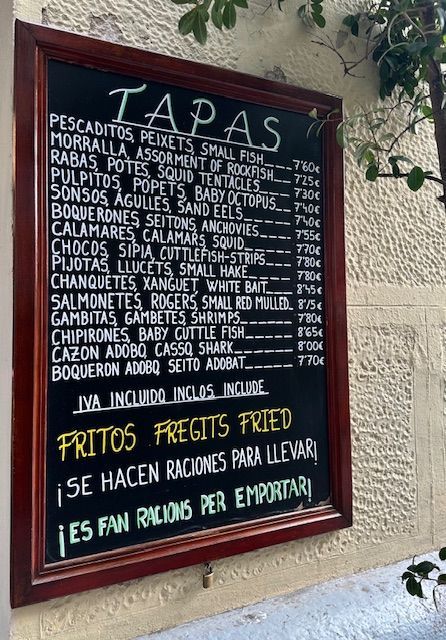 TAPAS
PESCADITOS, PEIXETS, SMALL FISH____7'60€
MORRALLA, ASSORMENT OF ROCKFISH___7'25€
RABAS, POTES, SQUID TENTACLES____7'30€
PULPITOS, POPETS, BABY OCTOPUS____7'40€
SONSOS, AGULLES, SAND EELS____7'40€
BOQUERONES SEITONS, ANCHOVIES____7'55€
CALAMARES, CALAMARS, SQUID____7'70€
CHOCOS, SIPIA, CUTTLEFISH-STRIPS____7'80€
PIJOTAS, LLUCETS, SMALL HAKE____7'80€
CHANQUETES, XANGUET, WHITE BAIT____8'45€
SALMONETES, ROGERS, SMALL RED MULLED_ 8'75€
GAMBITAS, GAMBETES, SHRIMPS____7'80€
CHIPIRONES, BABY CUTTLE FISH____8'65€
CAZON ADOBO, CASSO, SHARK____8'00€
BOQUERON ADOBO, SEITO ADOBAT____7'70€
IVA INCLUIDO INCLOS, INCLUDE
FRITOS FREGITS FRIED
¡SE HACEN RACIONES PARA LLEVAR!
¡ES FAN RACIONS PER EMPORTAR!